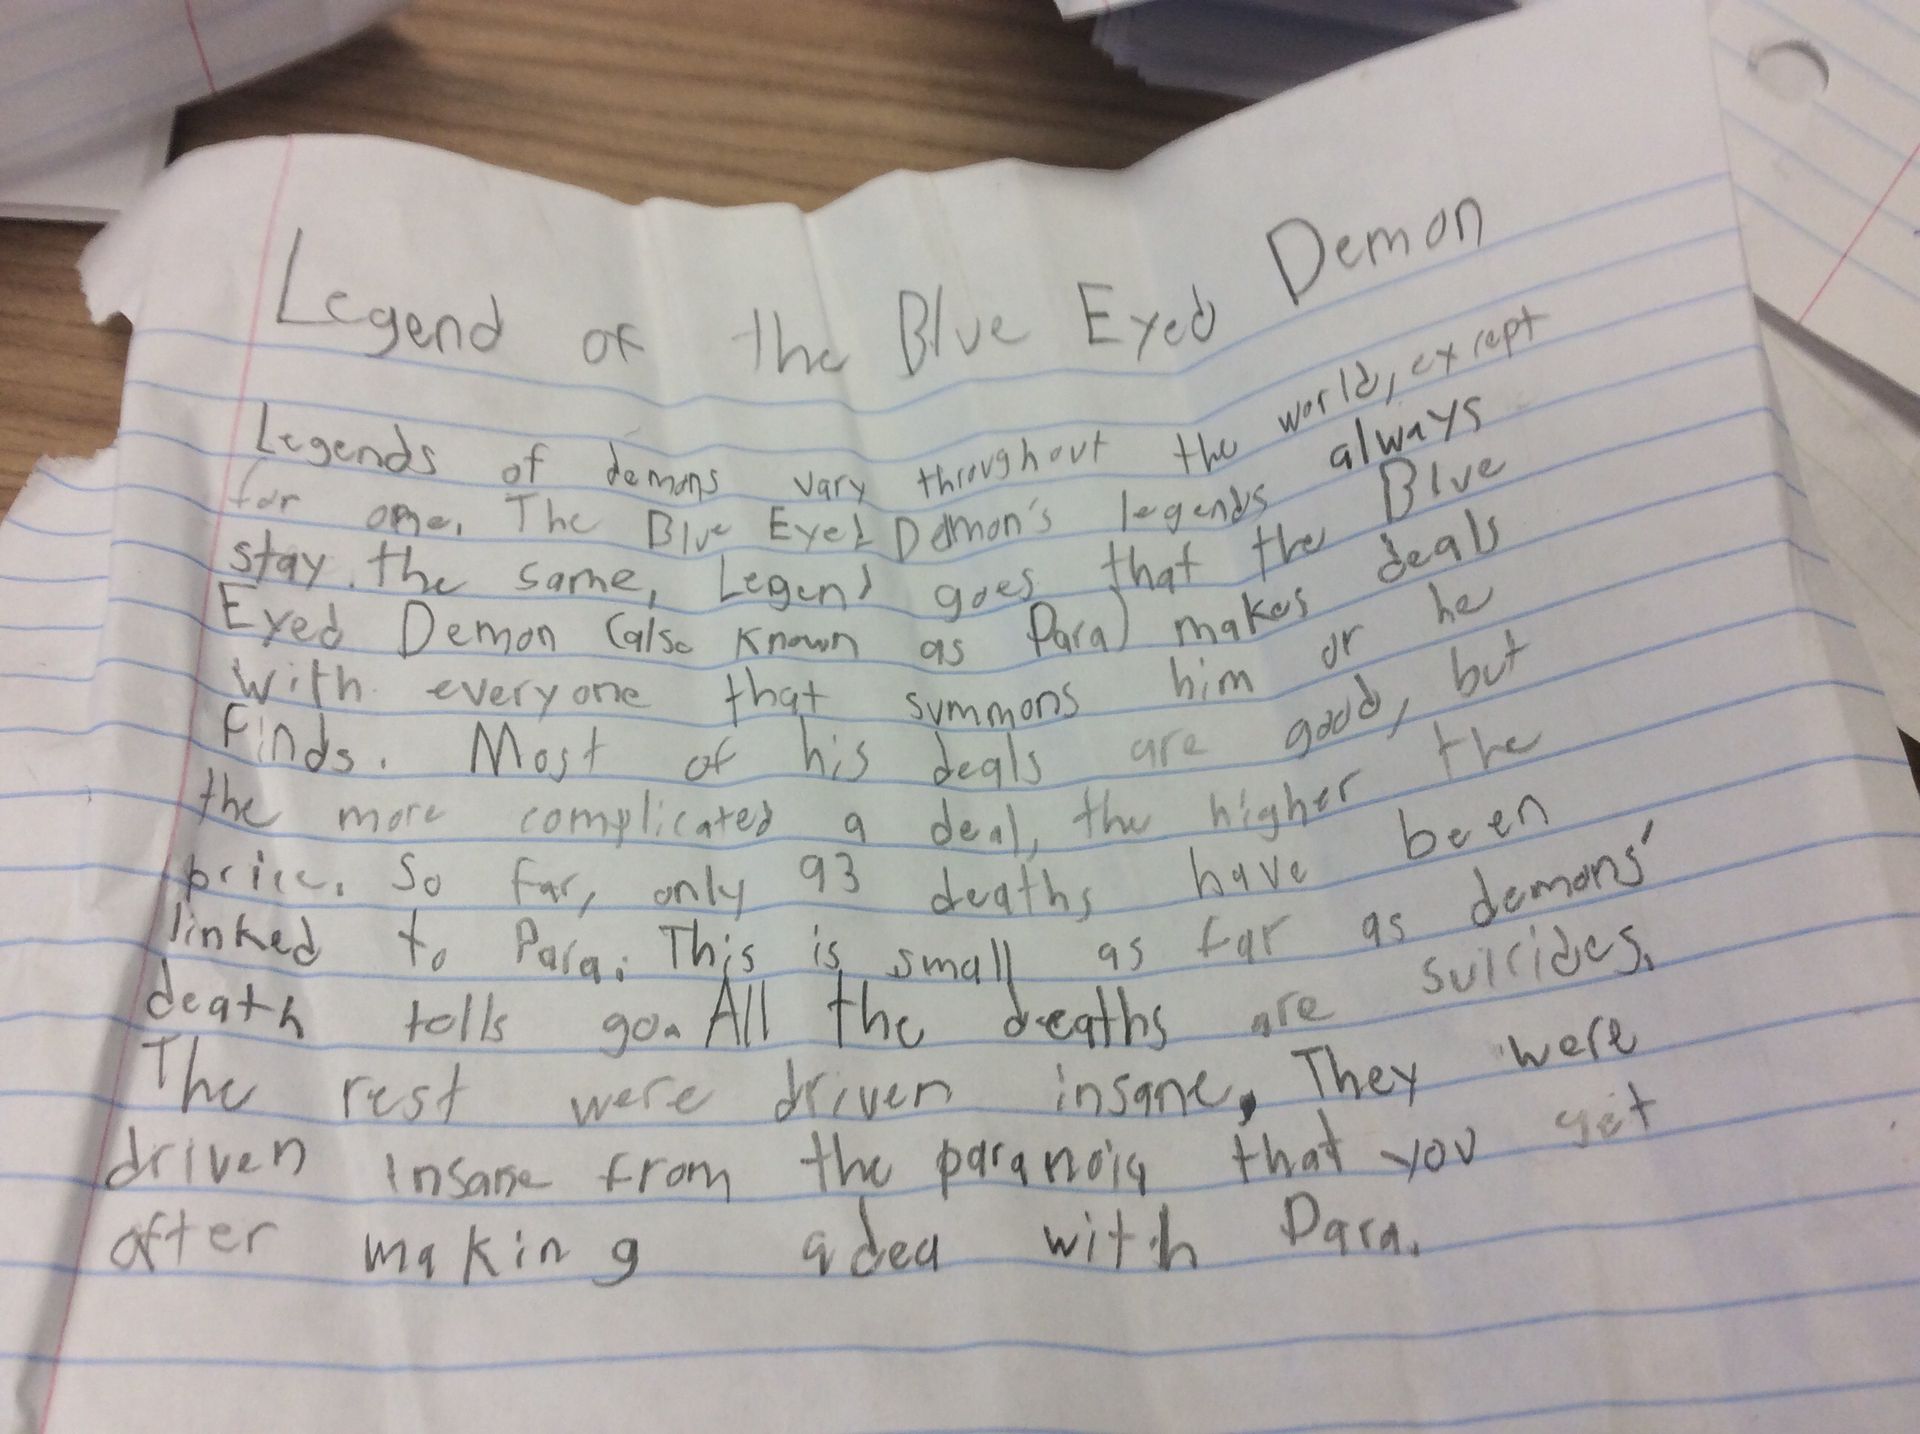 Legend of the Blue Eyed Demon
Legends of demons vary throughout the world, except
for one. The Blue Eyed Demon's legends always
stay the same, Legend goes that the Blue
Eyed Demon (also known as Para) makes deals
with everyone that summons him or he
finds. Most of his deals are good, but
the more complicated a deal, the higher the
price. So far, only 93 deaths have been
linked to Para. This is small as far as demons'
death tolls go. All the deaths are suicides.
The rest were driven insane. They were
driven insane from the paranoia that you get
after making a dea with Para.